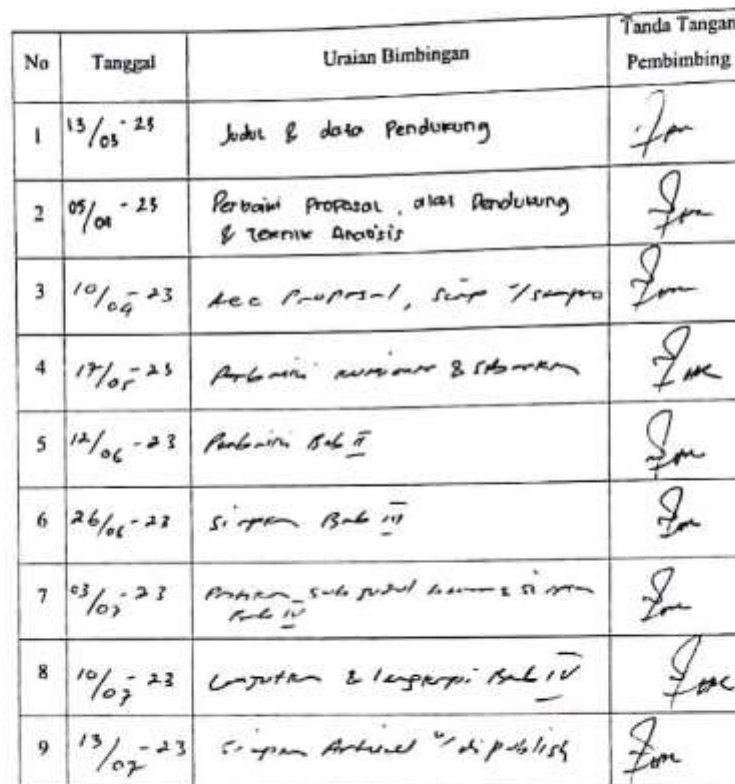 No Tanggal Uraian Bimbingan Tanda Tangan Pembimbing
1 13/03-23 Judul & data Pendukung
2 05/04-23 Perbaiki Proposal, alat Pendukung
& Teknik Analisis
3 10/04-23 Acc Proposal,
4 17/05-23 Perbaiki kuesioner & sebarkan
5 12/06-23 Perbaiki Bab II
6 26/06-23 Siapkan Bab III
7 03/07-23 sub judul
Bab IV
8 10/07-23 Lanjutkan & lengkapi Bab IV
9 13/07-23 Siapkan Artikel u/ dipublish